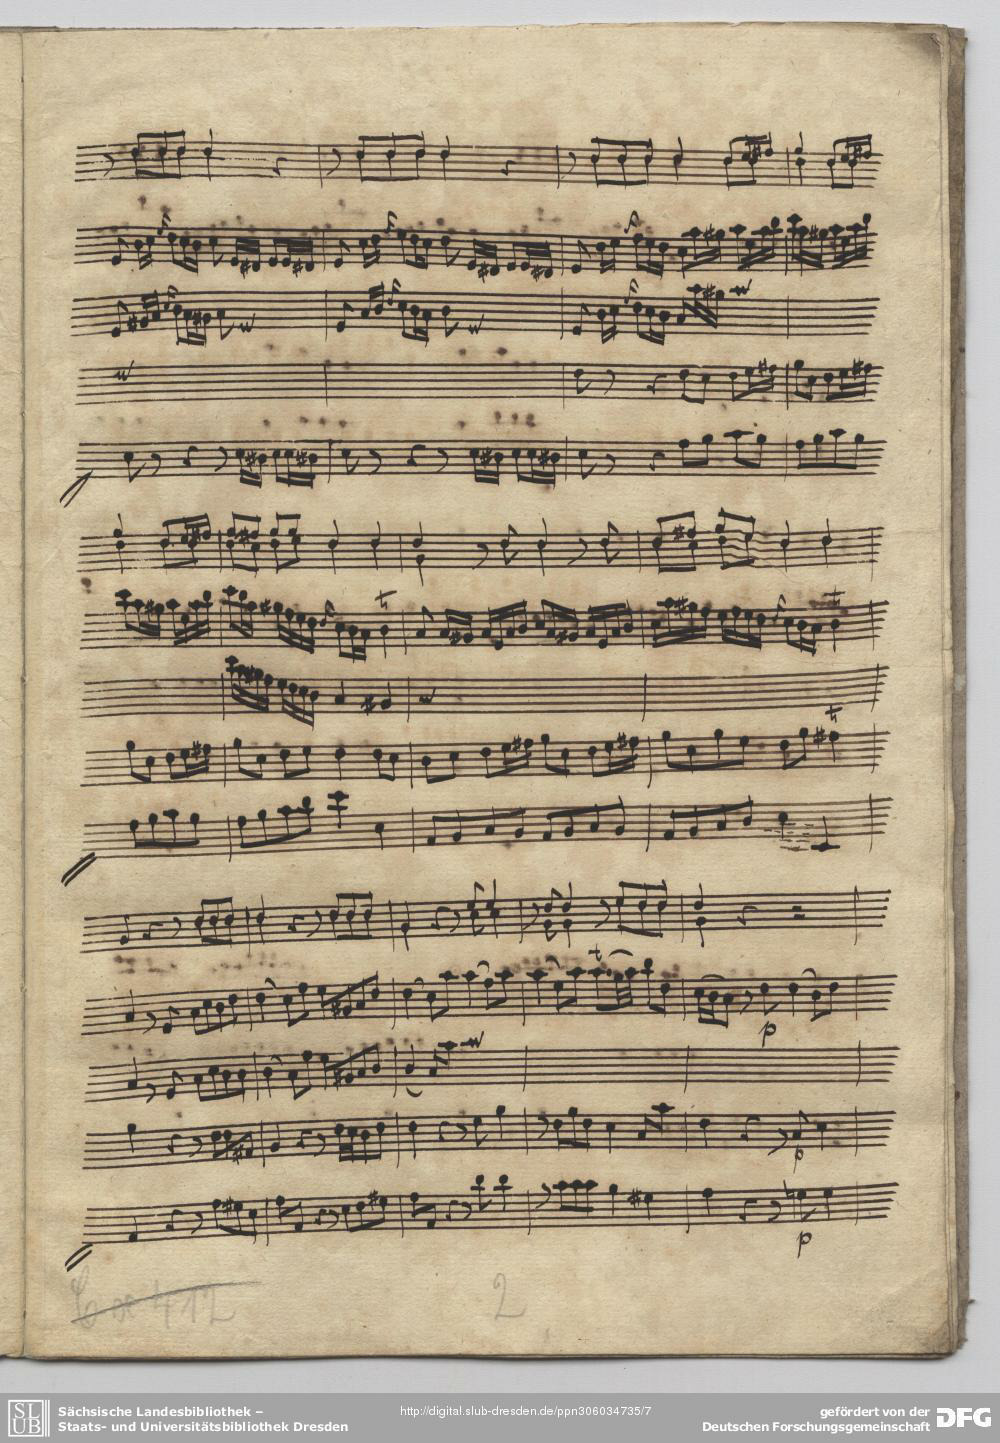 p
p
p
2
SLUB
Sächsische Landesbibliothek –
Staats- und Universitätsbibliothek Dresden
http://digital.slub-dresden.de/ppn306034735/7
gefördert von der
Deutschen Forschungsgemeinschaft
DFG